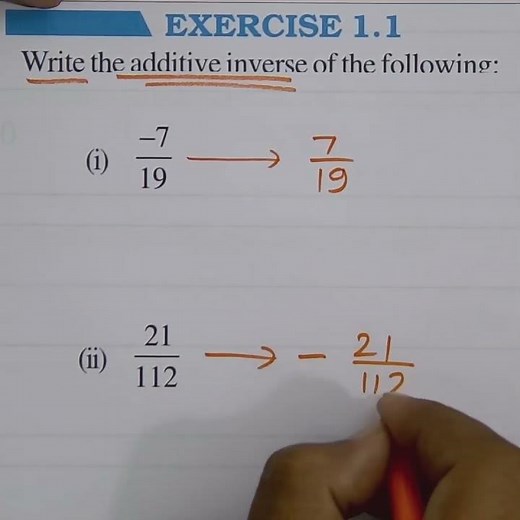 EXERCISE 1.1
Write the additive inverse of the following:
(i) -7/19 → 7/19
(ii) 21/112 → - 21/112